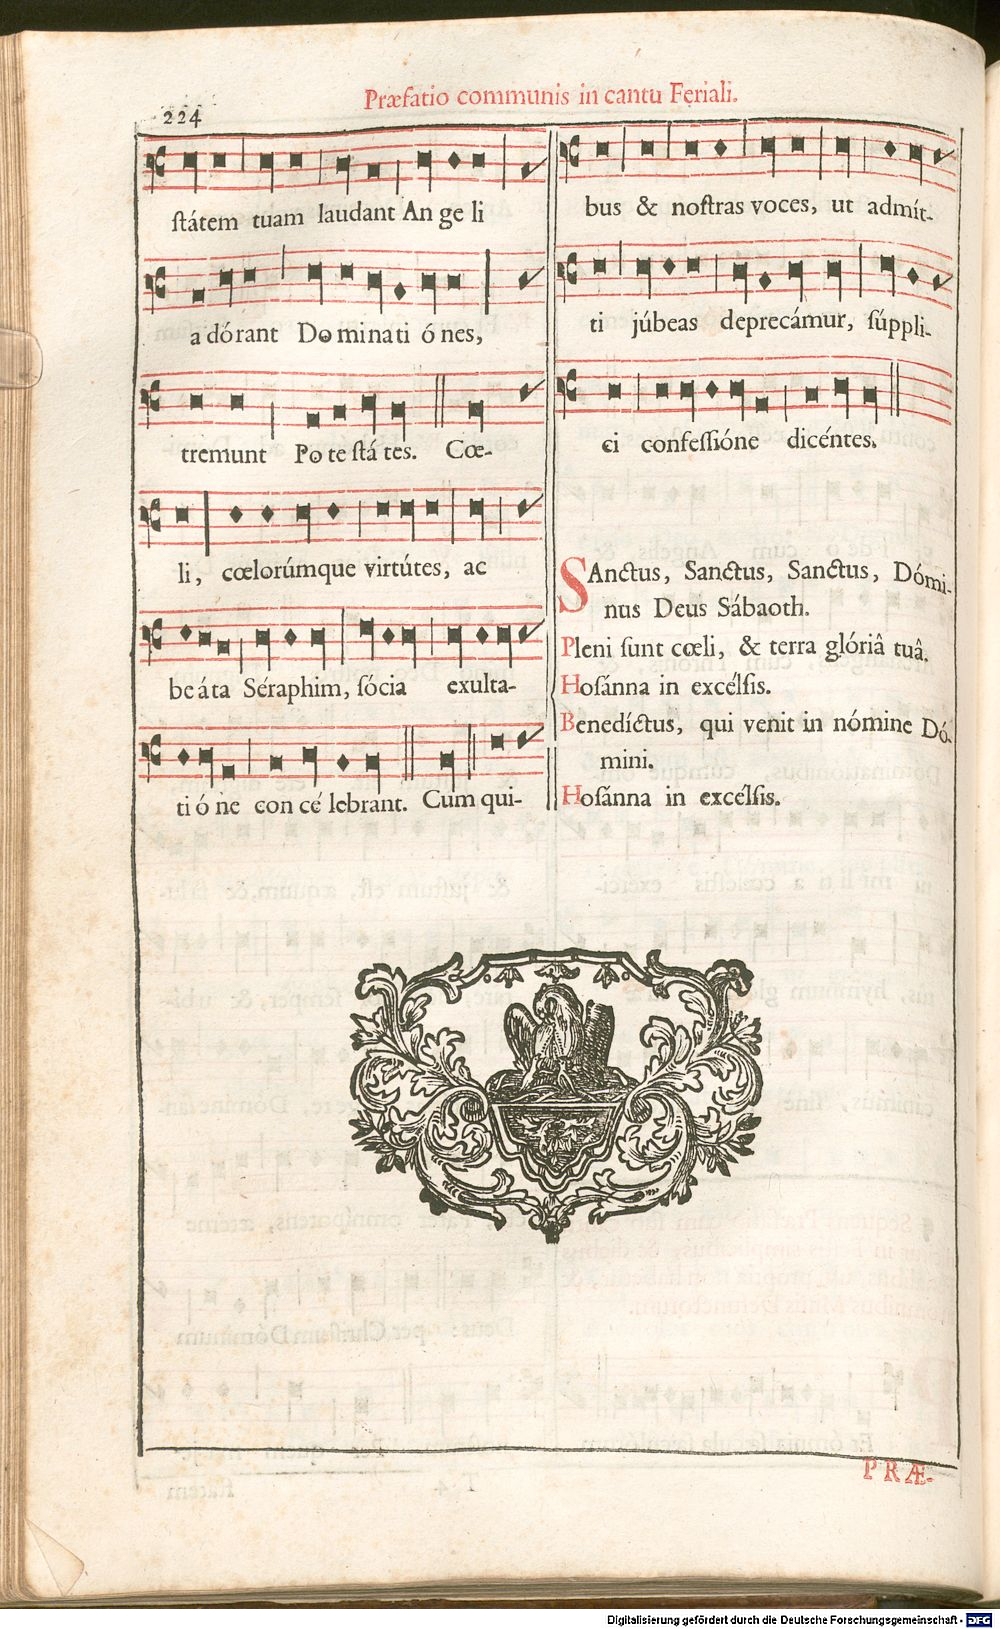 Præfatio communis in cantu Feriali.
224
ſtátem tuam laudant An ge li
a dórant Do mina ti ó nes,
tremunt Po te ſtá tes. Cœ-
li, cœlorúmque virtútes, ac
be á ta Séraphim, ſócia exulta-
ti ó ne con cé lebrant. Cum qui-
bus & noſtras voces, ut admít-
ti júbeas deprecámur, ſúppli-
ci confeſſióne dicéntes.
SAnctus, Sanctus, Sanctus, Dómi-
nus Deus Sábaoth.
Pleni ſunt cœli, & terra glóriâ tuâ.
Hoſánna in excélſis.
Benedíctus, qui venit in nómine Dó-
mini.
Hoſánna in excélſis.
PRÆ-
Digitalisierung gefördert durch die Deutsche Forschungsgemeinschaft - DFG